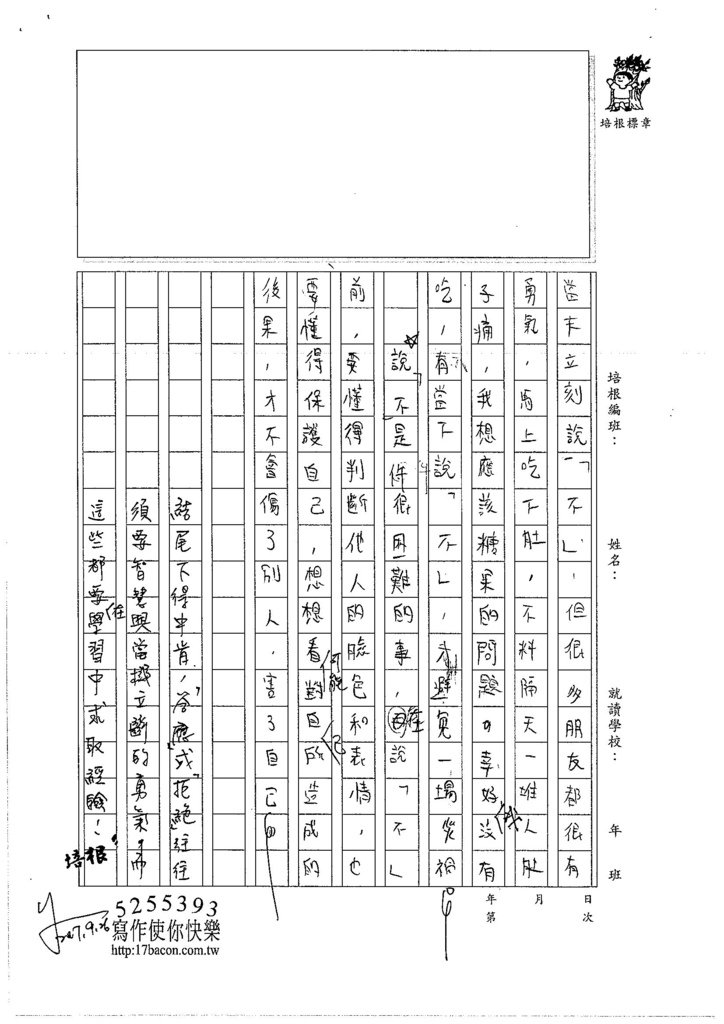 培根標章
培根編班：
姓名：
就讀學校：
年
班
當未立刻說「不」，但很多朋友都很有
勇氣，馬上吃下肚，不料隔天一堆人肚
子痛，我想應該糖果的問題，幸好我沒有
吃，有當下說「不」，才避免一場災禍。
說「不」是件很困難的事，在說「不」
前，要懂得判斷他人的臉色和表情，也
要懂得保護自己，想想看對自己可能所造成的
後果，才不會傷了別人，害了自己。
結尾下得中肯，「答應」或「拒絕」往往
須要智慧與當機立斷的勇氣，而
這些都要在學習中求取經驗！
培根
97.9.26
年 月 日
第 次
5255393
寫作使你快樂
http:17bacon.com.tw